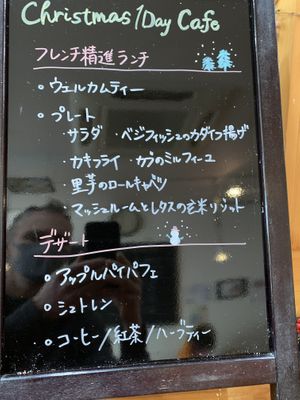 Christmas 1Day Cafe
フレンチ精進ランチ
・ウェルカムティー
・プレート
サラダ・ベジフィッシュのカダイフ揚げ
・カキフライ・カブのミルフィーユ
・里芋のロールキャベツ
・マッシュルームとレタスの玄米リゾット
デザート
・アップルパイパフェ
・シュトレン
・コーヒー/紅茶/ハーブティー